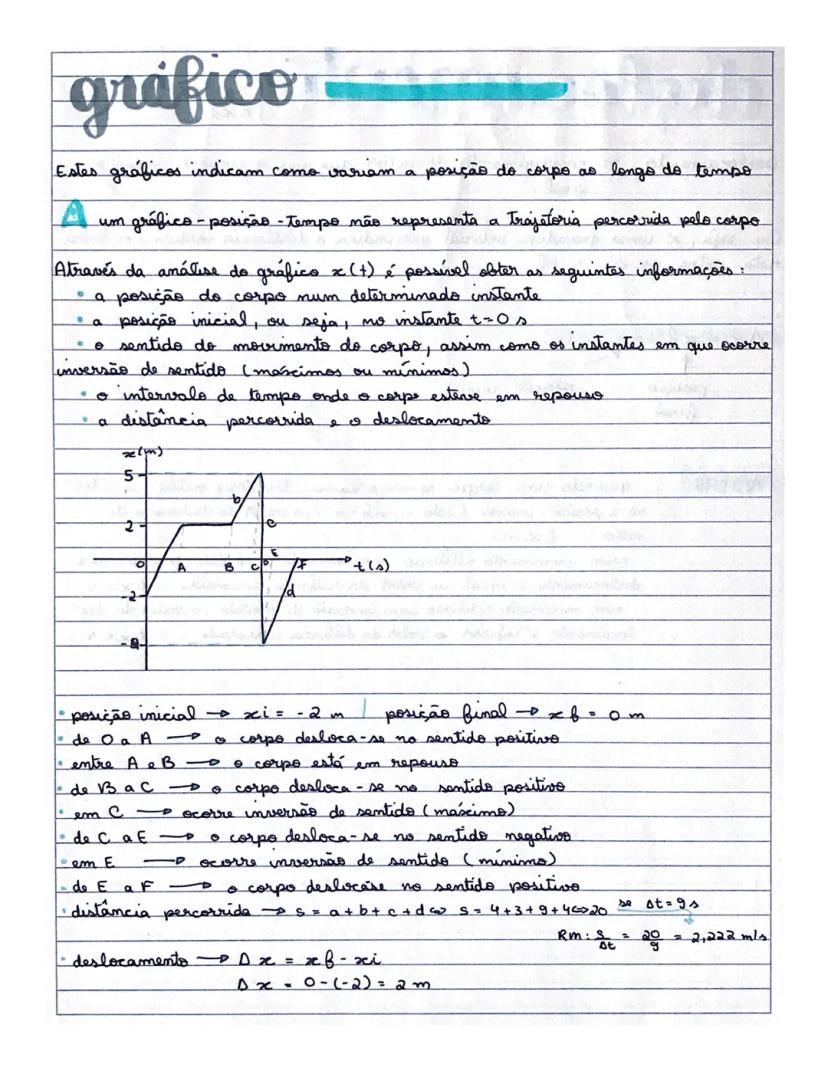 gráfico
Estes gráficos indicam como variam a posição do corpo ao longo do tempo
A um gráfico-posição-Tempo não representa a Trajetoria percorrida pelo corpo
Através da análise do gráfico x(t) é possível obter as seguintes informações:
• a posição do corpo num determinado instante
• a posição inicial, ou seja, no instante t=0 s
• o sentido do movimento do corpo, assim como os instantes em que ocorre
inversão de sentido (máximos ou mínimos)
• o intervalo de tempo onde o corpo esteve em repouso
• a distância percorrida e o deslocamento
x(m)
5
b
2
c
E
0 A B C D F t(s)
-2
d
• posição inicial → xi = -2 m | posição final → xf = 0 m
• de O a A → o corpo desloca-se no sentido positivo
• entre A e B → o corpo está em repouso
• de B a C → o corpo desloca-se no sentido positivo
• em C → ocorre inversão de sentido (máximo)
• de C a E → o corpo desloca-se no sentido negativo
• em E → ocorre inversão de sentido (mínimo)
• de E a F → o corpo deslocase no sentido positivo
• distância percorrida → s = a+b+c+d ⇔ s = 4+3+9+4⇔20 se Δt = 9 s
Rm: s/Δt = 20/9 = 2,222 m/s
• deslocamento → Δx = xf - xi
Δx = 0-(-2) = 2 m